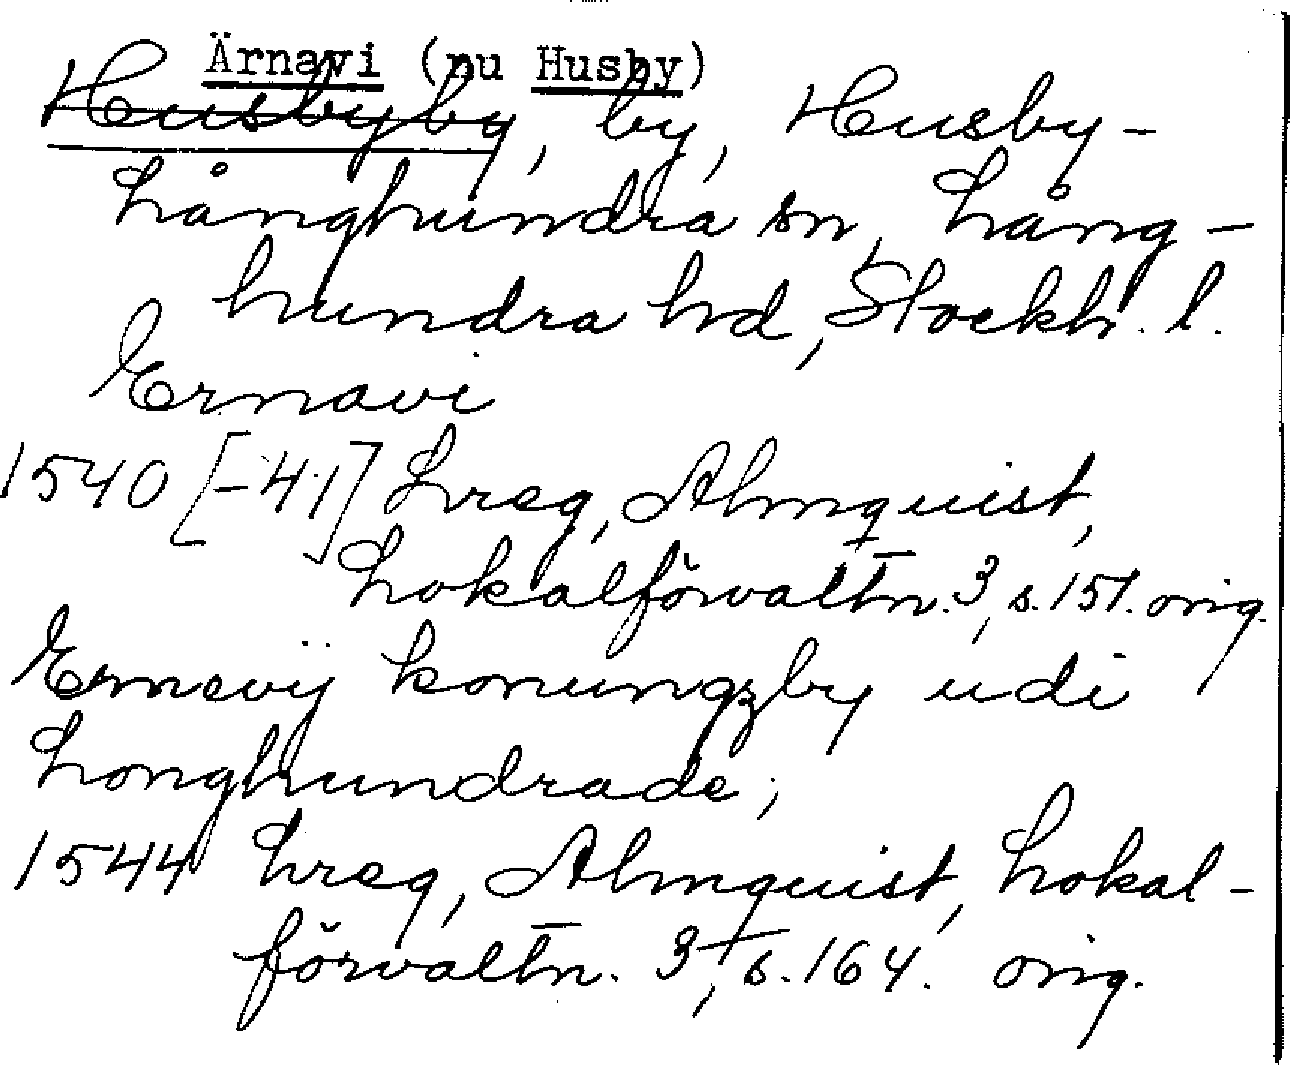 Ärnavi (nu Husby)
Husbyby, by, Husby-
Långhundra sn, Lång-
hundra hd, Stockh. l.
Ernavi
1540 [-41] Lreg, Almquist,
Lokalförvaltn. 3, s. 151. orig.
Ernevij konungzby udi
Longhundrade;
1544 Lreg, Almquist, Lokal-
förvaltn. 3, s. 164. orig.